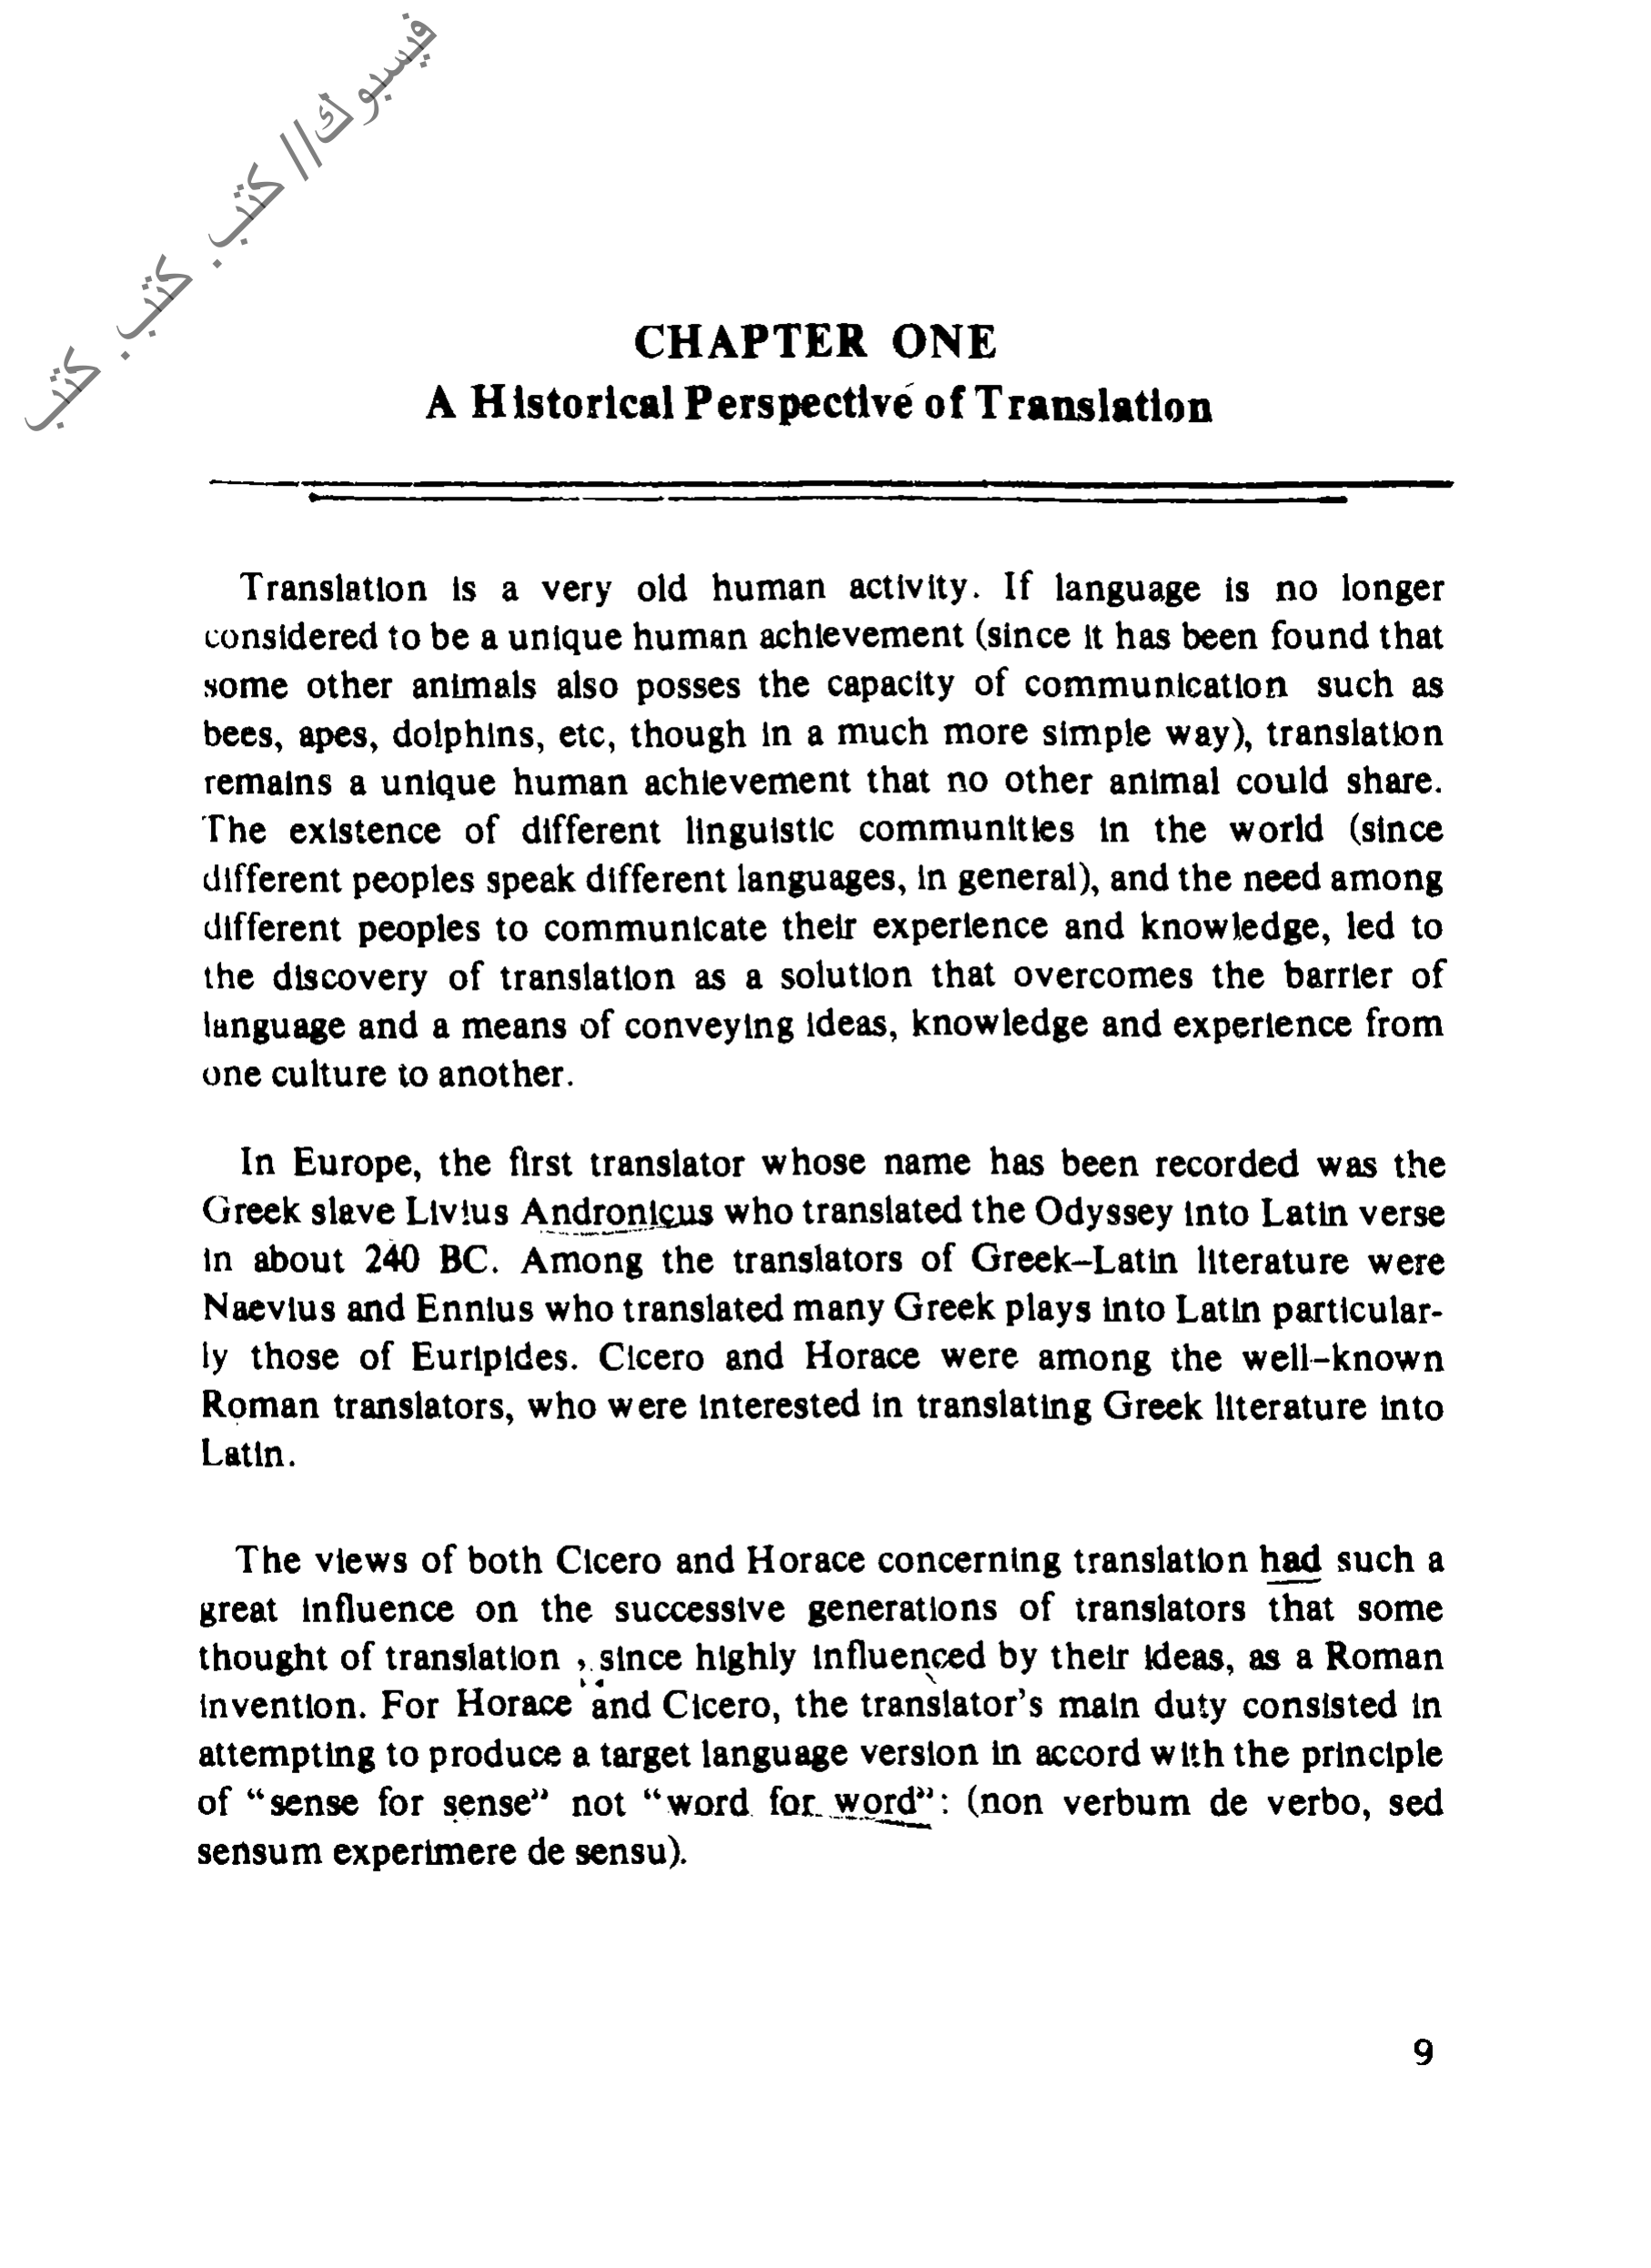 فيسبوك// كتب. كتب. كتب
CHAPTER ONE
A Historical Perspective of Translation
Translation is a very old human activity. If language is no longer
considered to be a unique human achievement (since it has been found that
some other animals also posses the capacity of communication such as
bees, apes, dolphins, etc, though in a much more simple way), translation
remains a unique human achievement that no other animal could share.
The existence of different linguistic communities in the world (since
different peoples speak different languages, in general), and the need among
different peoples to communicate their experience and knowledge, led to
the discovery of translation as a solution that overcomes the barrier of
language and a means of conveying ideas, knowledge and experience from
one culture to another.
In Europe, the first translator whose name has been recorded was the
Greek slave Livius Andronicus who translated the Odyssey into Latin verse
in about 240 BC. Among the translators of Greek–Latin literature were
Naevius and Ennius who translated many Greek plays into Latin particular-
ly those of Euripides. Cicero and Horace were among the well–known
Roman translators, who were interested in translating Greek literature into
Latin.
The views of both Cicero and Horace concerning translation had such a
great influence on the successive generations of translators that some
thought of translation , since highly influenced by their ideas, as a Roman
invention. For Horace and Cicero, the translator's main duty consisted in
attempting to produce a target language version in accord with the principle
of "sense for sense" not "word for word": (non verbum de verbo, sed
sensum experimere de sensu).
9